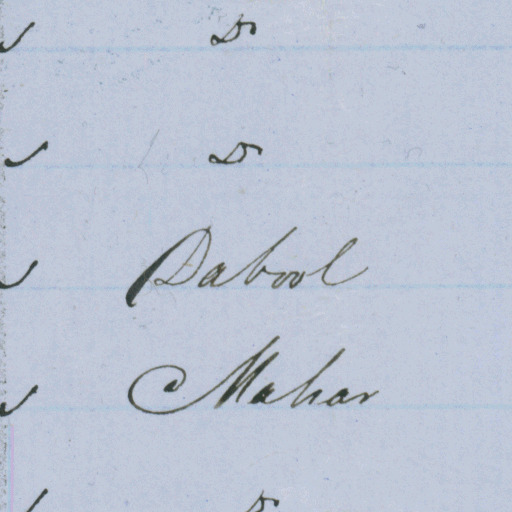 Do
Do
Dabool
Mahar
Do